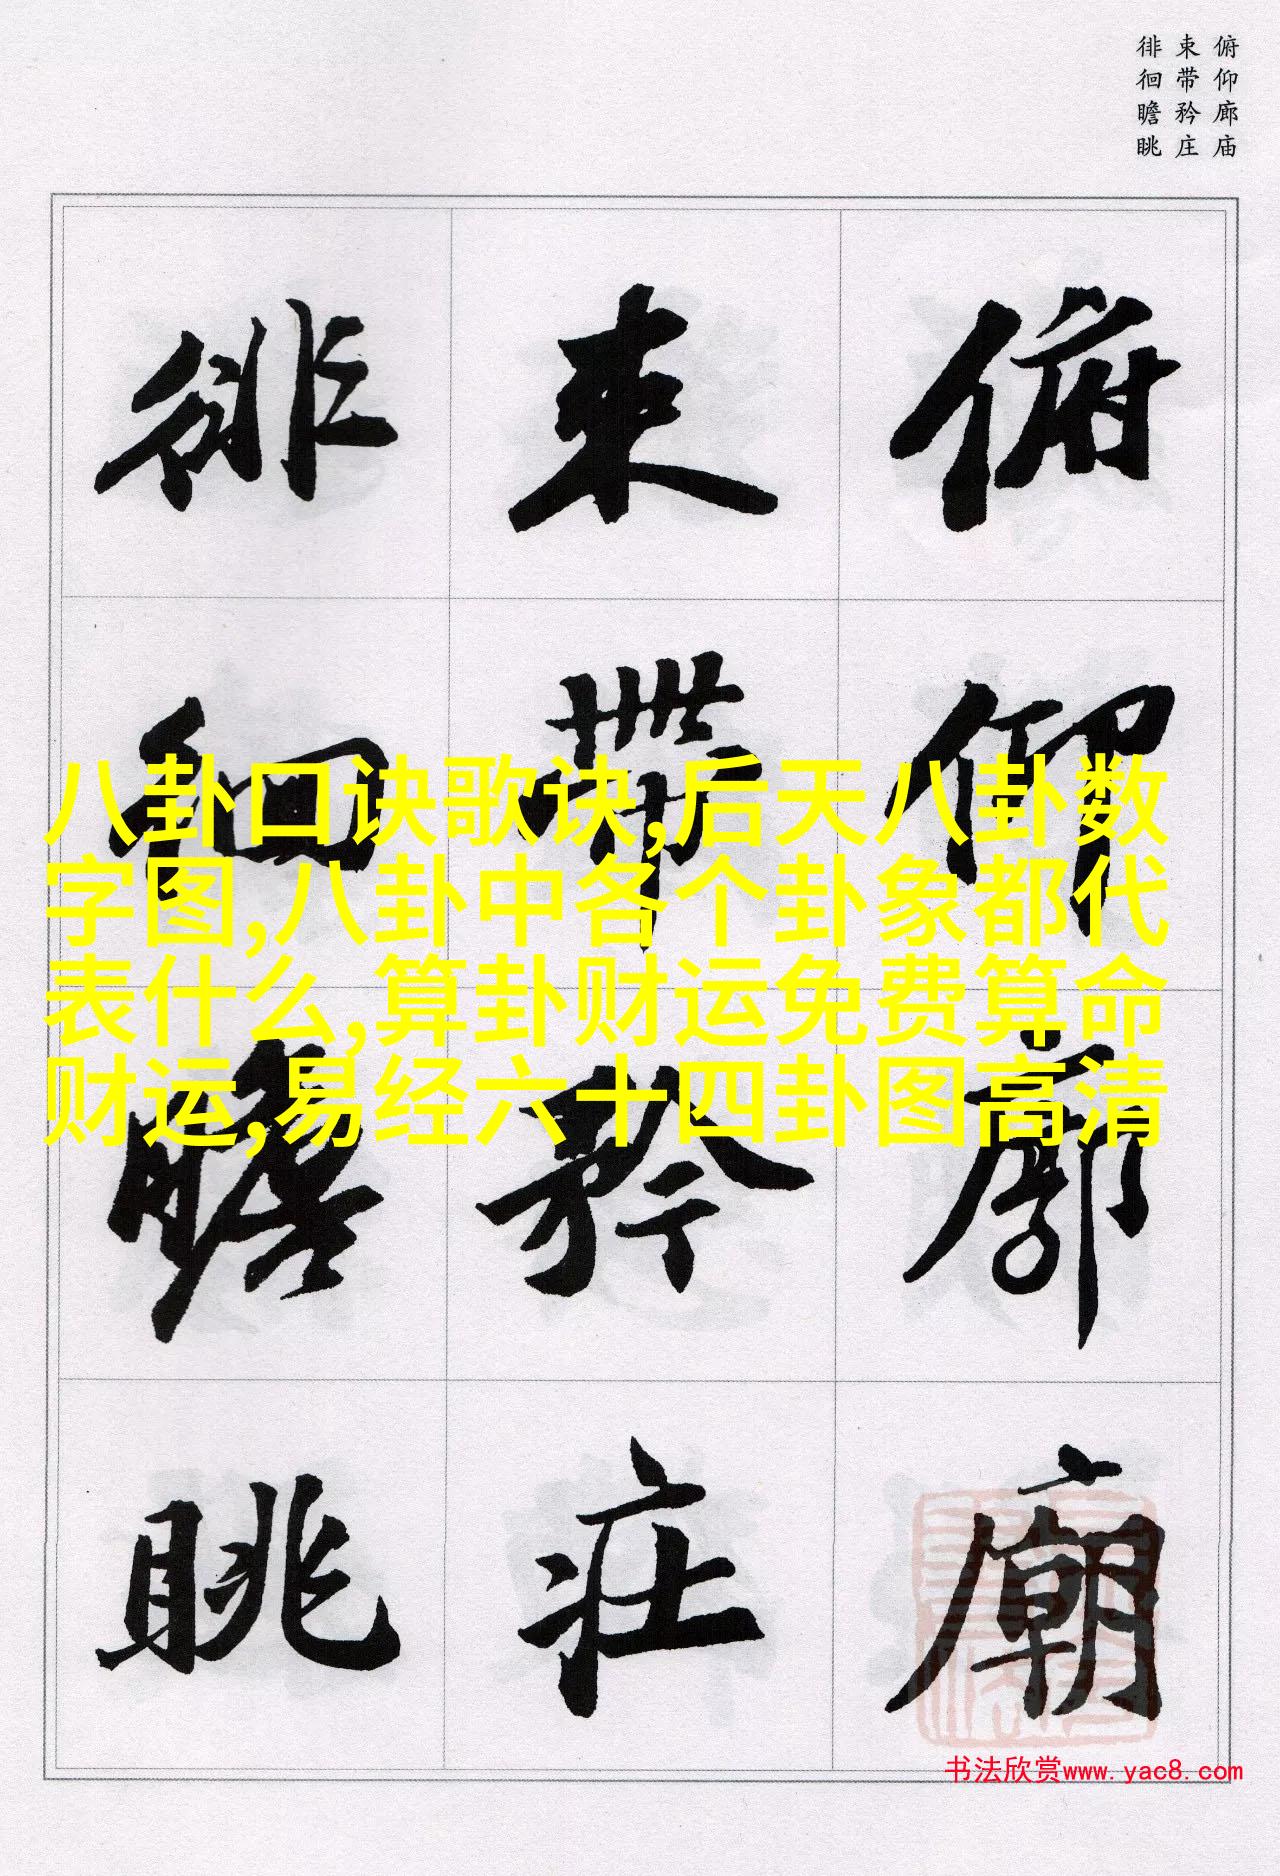 俯仰廊庙
束带矜庄
徘徊瞻眺
俯仰廊廟
束帶矜莊
徘徊瞻眺
八卦口诀歌诀,后天八卦数
字图,八卦中各个卦象都代
表什么,算卦财运免费算命
财运,易经六十四卦图高清
书法欣赏www.yac8.com